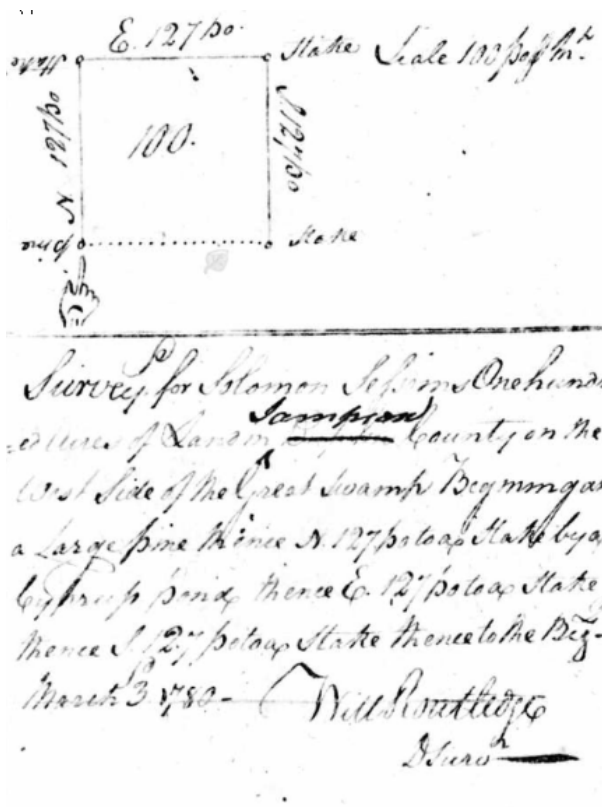 E. 127 po.
Stake
Stake Scale 100 po pr Inch
N 127 po
100.
S 127 po
pine
Stake
Survey'd for Solomon Sessims One hund
ed acres of Land in Sampson County on the
West Side of the Great Swamp Begining at
a Large pine thence N. 127 po to a Stake by a
Cyprus pond thence E. 127 po to a Stake
thence S. 127 po to a Stake thence to the Beg-
March 3d 1780 - Will Routledge
D Survr